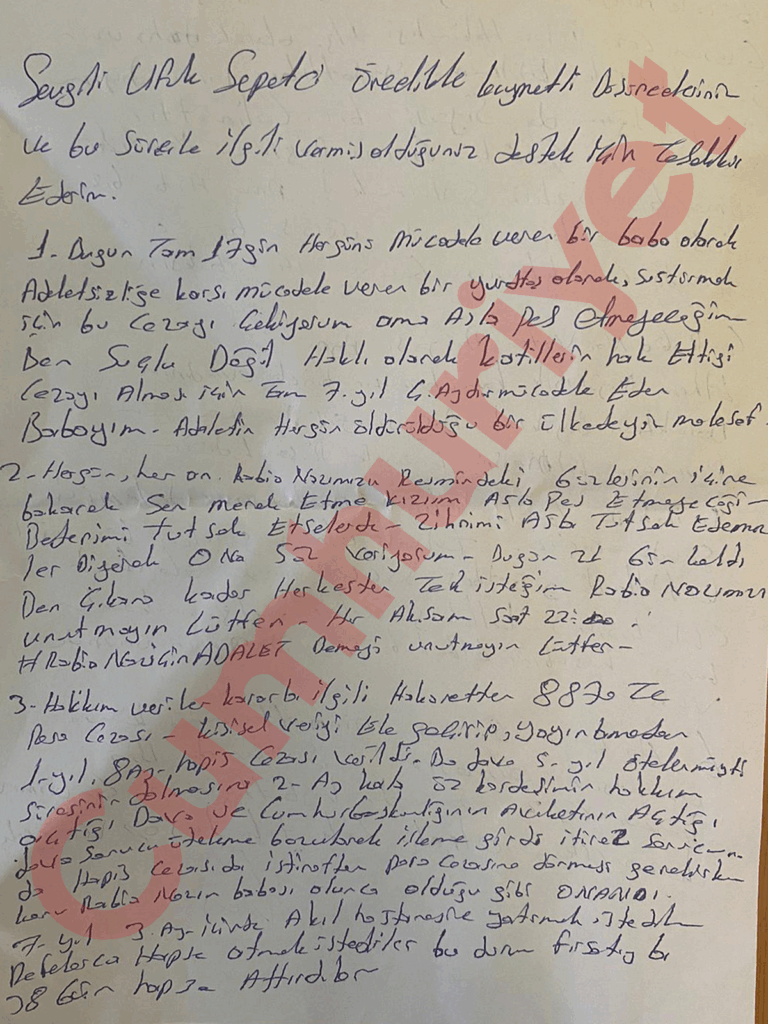 Sevgili Ufuk Sepetci Öncelikle kıymetli Düşünceleriniz
ve bu Süreçle ilgili vermiş olduğunuz destek için Teşekkür
Ederim.
1- Bugün Tam 17 gün Hergünü Mücadele veren bir baba olarak
Adaletsizliğe karşı mücadele veren bir yurttaş olarak, susturmak
için bu Cezayı Çekiyorum ama Asla pes etmeyeceğim
Ben Suçlu Değil Haklı olarak katillerin hak Ettiği
Cezayı Alması için Tam 7. yıl Aydır mücadele Eden
Babayım- Adaletin Hergün öldürüldüğü bir ülkedeyiz malesef.
2- Hergün, her an Rabia Nazımızın Resmindeki Gözlerinin içine
bakarak Sen merak Etme kızım Asla Pes Etmeyeceğim-
Bedenimi Tutsak Etselerde- Zihnimi Asla Tutsak Edemez
ler Diyerek Ona Söz Veriyorum- Bugün 21 Gün kaldı
Ben Çıkana kadar Herkesten Tek isteğim Rabia Nazımızı
unutmayın Lütfen- Her Akşam Saat 22:00
#RabiaNaziçinADALET Demeyi unutmayın Lütfen-
3- Hakkım verilen kararla ilgili Hakaretten 8870 TL
Para Cezası- kişisel veriyi Ele geçirip, yayınlamadan
1-yıl. 8Ay- hapis Cezası verildi- Bu dava 5- yıl ötelenmişti
Süresinin dolmasına 2- Ay kala öz kardeşimin hakkım
açtığı Dava ve Cumhurbaşkanlığının Avukatının Açtığı
dava Sonucu öteleme bozularak işleme girdi itiraz Sonucun
da Hapis Cezasıda istinaften para cezasına dönmesi gerekirken
konu Rabia Nazın babası olunca olduğu gibi ONANDI.
7- yıl 3 Ay- içinde Akıl hastanesine yatırmak istediler
Defalarca Hapse atmak istediler bu durum fırsatıyla
38 Gün hapse Attırdılar
Cumhuriyet